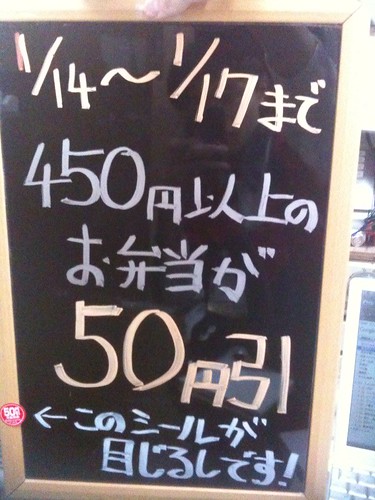 1/14〜1/17まで
450円以上の
お弁当が
50円引
←このシールが
目じるしです!